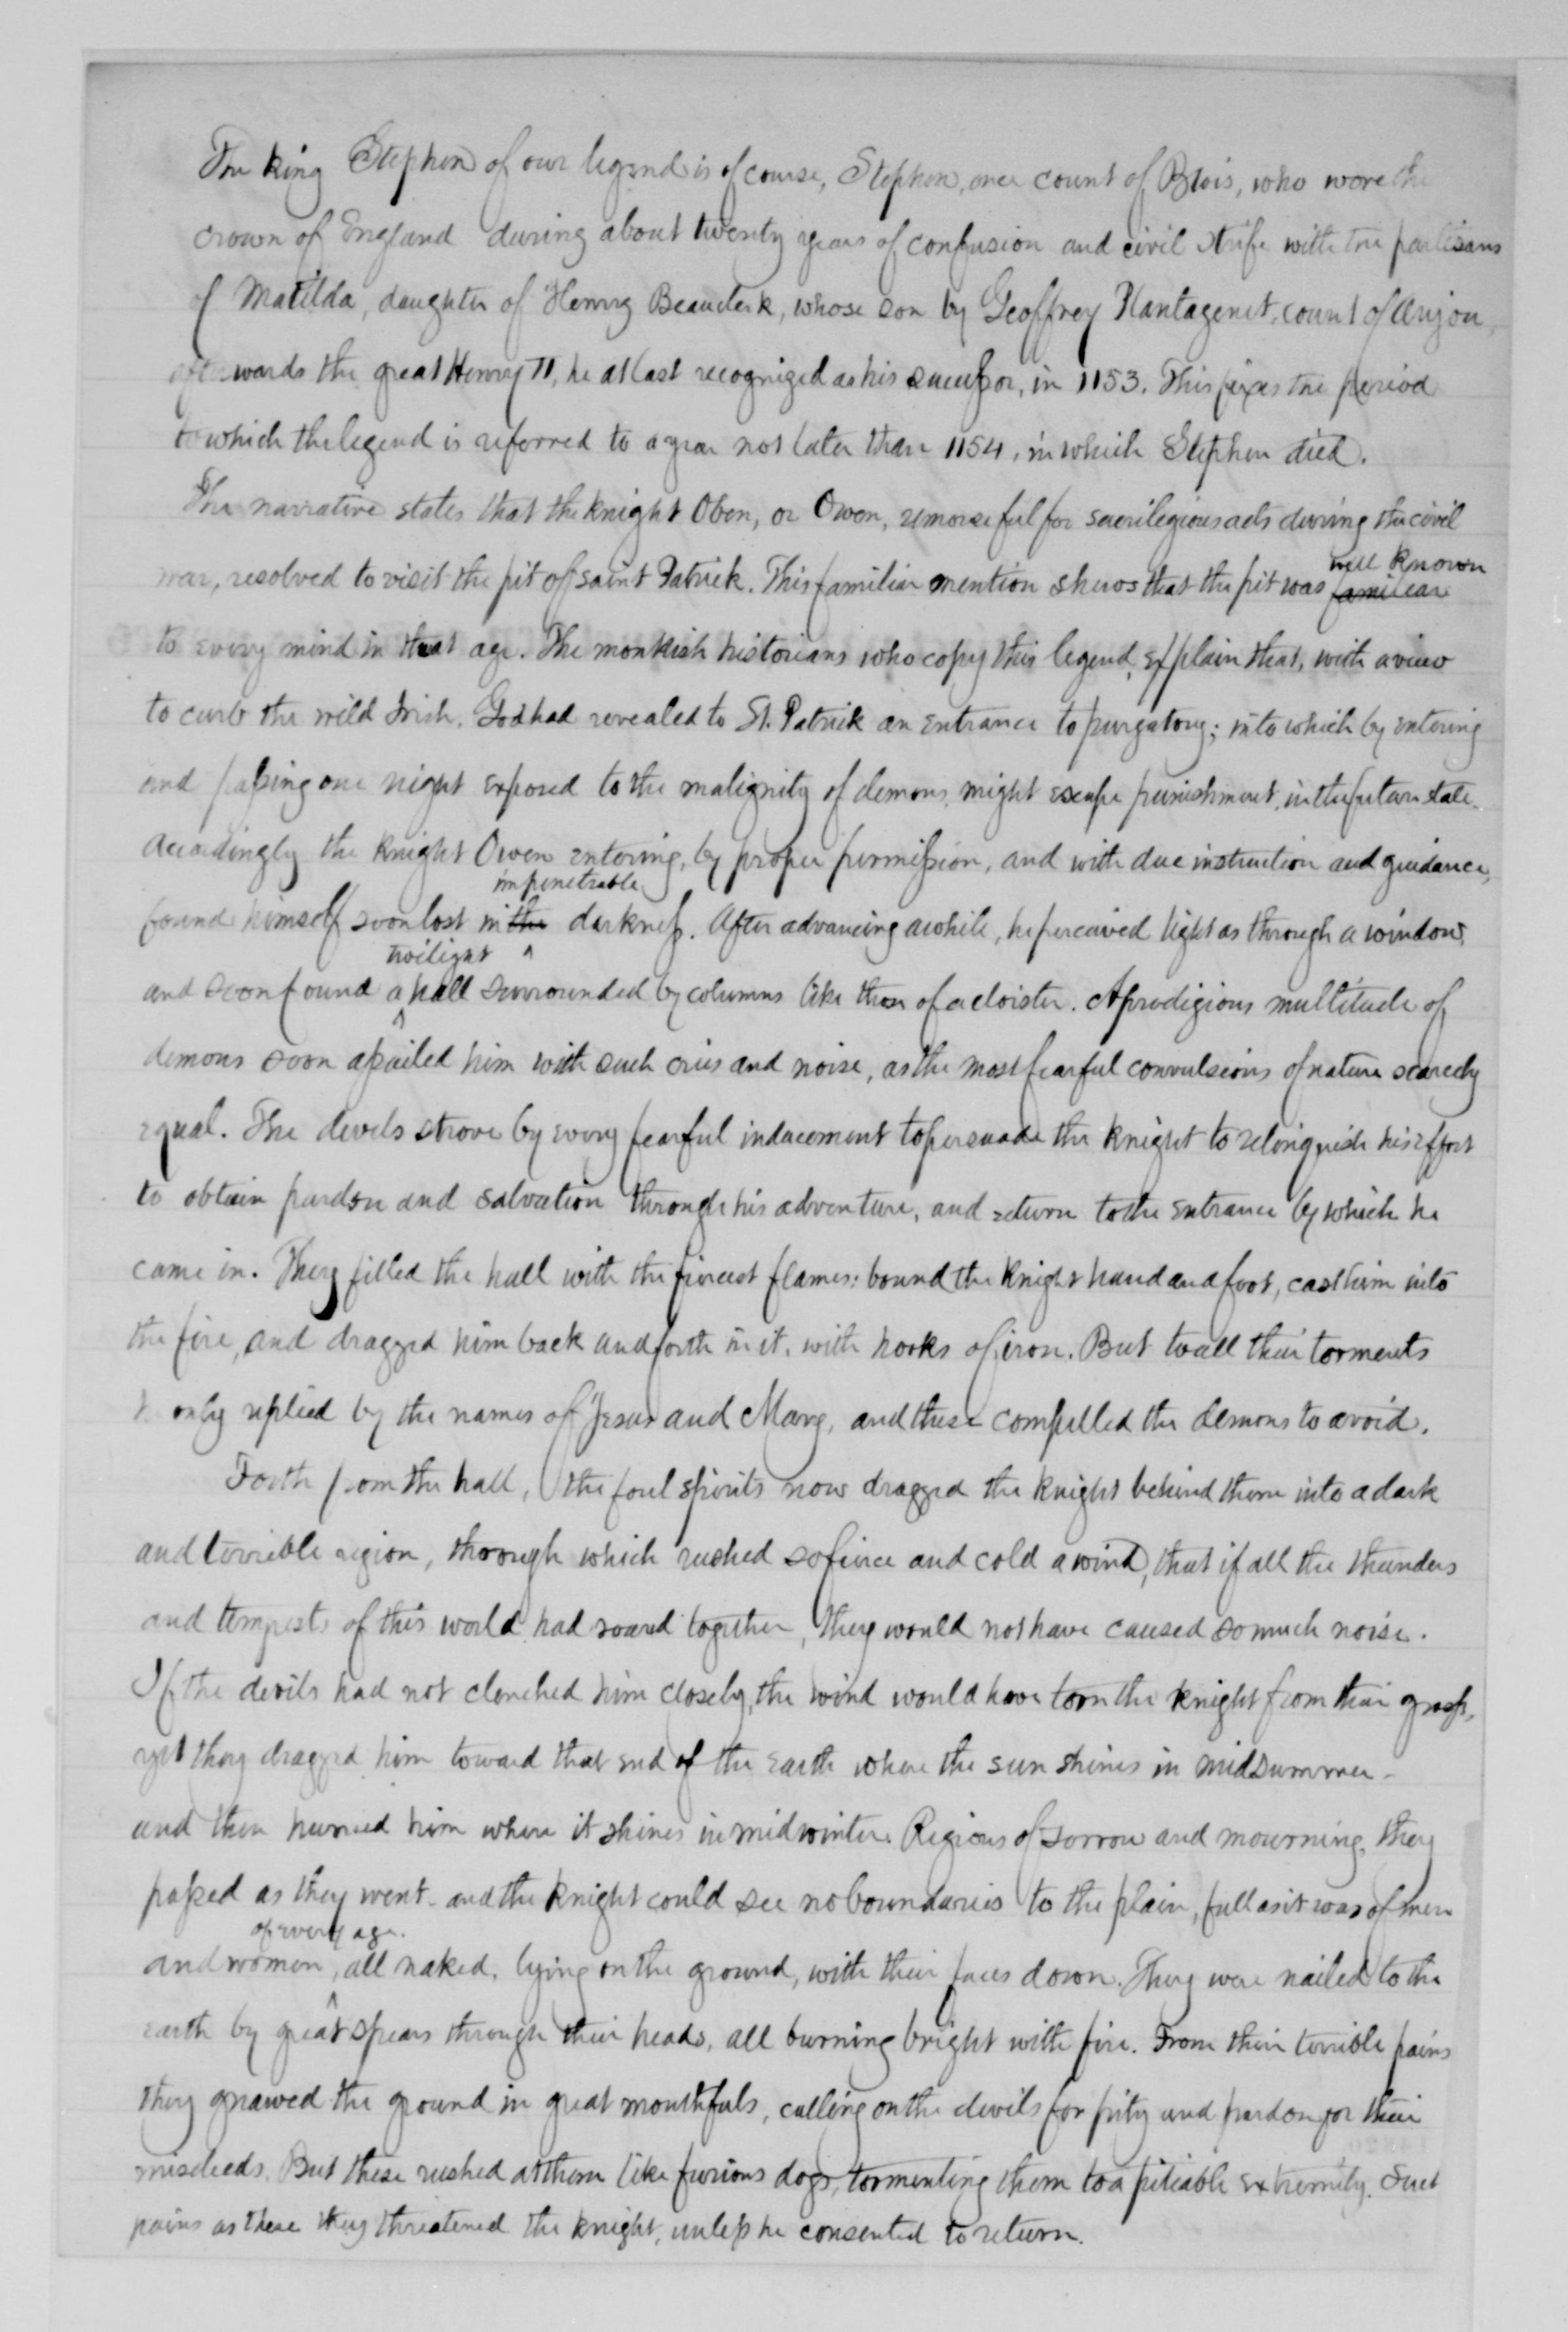 The king Stephen of our legend is of course, Stephen, once count of Blois, who wore the
crown of England during about twenty years of confusion and civil strife with the partisans
of Matilda, daughter of Henry Beauclerk, whose son by Geoffrey Plantagenet, count of Anjou,
afterwards the great Henry II, he at last recognized as his successor, in 1153. This fixes the period
to which the legend is referred to a year not later than 1154, in which Stephen died.
The narrative states that the knight Oben, or Owen, remorseful for sacrilegious acts during the civil
war, resolved to visit the pit of saint Patrick. This familiar mention shews that the pit was familiar well known
to every mind in that age. The monkish historians who copy this legend, explain that, with a view
to curb the wild Irish, God had revealed to St. Patrick an entrance to purgatory; into which by entering
and passing one night exposed to the malignity of demons, might escape punishment in the future state.
Accordingly the knight Owen entering, by proper permission, and with due instruction and guidance,
found himself soon lost in the impenetrable darkness. After advancing awhile, he perceived light as through a window,
and soon found a twilight hall surrounded by columns like those of a cloister. A prodigious multitude of
demons soon assailed him with such cries and noise, as the most fearful convulsions of nature scarcely
equal. The devils strove by every fearful inducement to persuade the knight to relinquish his effort
to obtain pardon and salvation through his adventure, and return to the entrance by which he
came in. They filled the hall with the fiercest flames: bound the knight hand and foot, cast him into
the fire, and dragged him back and forth in it, with hooks of iron. But to all their torments
he only replied by the names of Jesus and Mary, and these compelled the demons to avoid.
Forth from the hall, the foul spirits now dragged the knight behind them into a dark
and terrible region, through which rushed so fierce and cold a wind, that if all the thunders
and tempests of this world had roared together, they would not have caused so much noise.
If the devils had not clenched him closely, the wind would have torn the knight from their grasp,
yet they dragged him toward that end of the earth where the sun shines in midsummer -
and then hurried him where it shines in midwinter. Regions of sorrow and mourning, they
passed as they went - and the knight could see no boundaries to the plain, full as it was of men
and women, of every age. all naked, lying on the ground, with their faces down. They were nailed to the
earth by great spears through their heads, all burning bright with fire. From their terrible pains
they gnawed the ground in great mouthfuls, calling on the devils for pity and pardon for their
misdeeds. But these rushed at them like furious dogs, tormenting them to a pitiable extremity. Such
pains as these they threatened the knight, unless he consented to return.